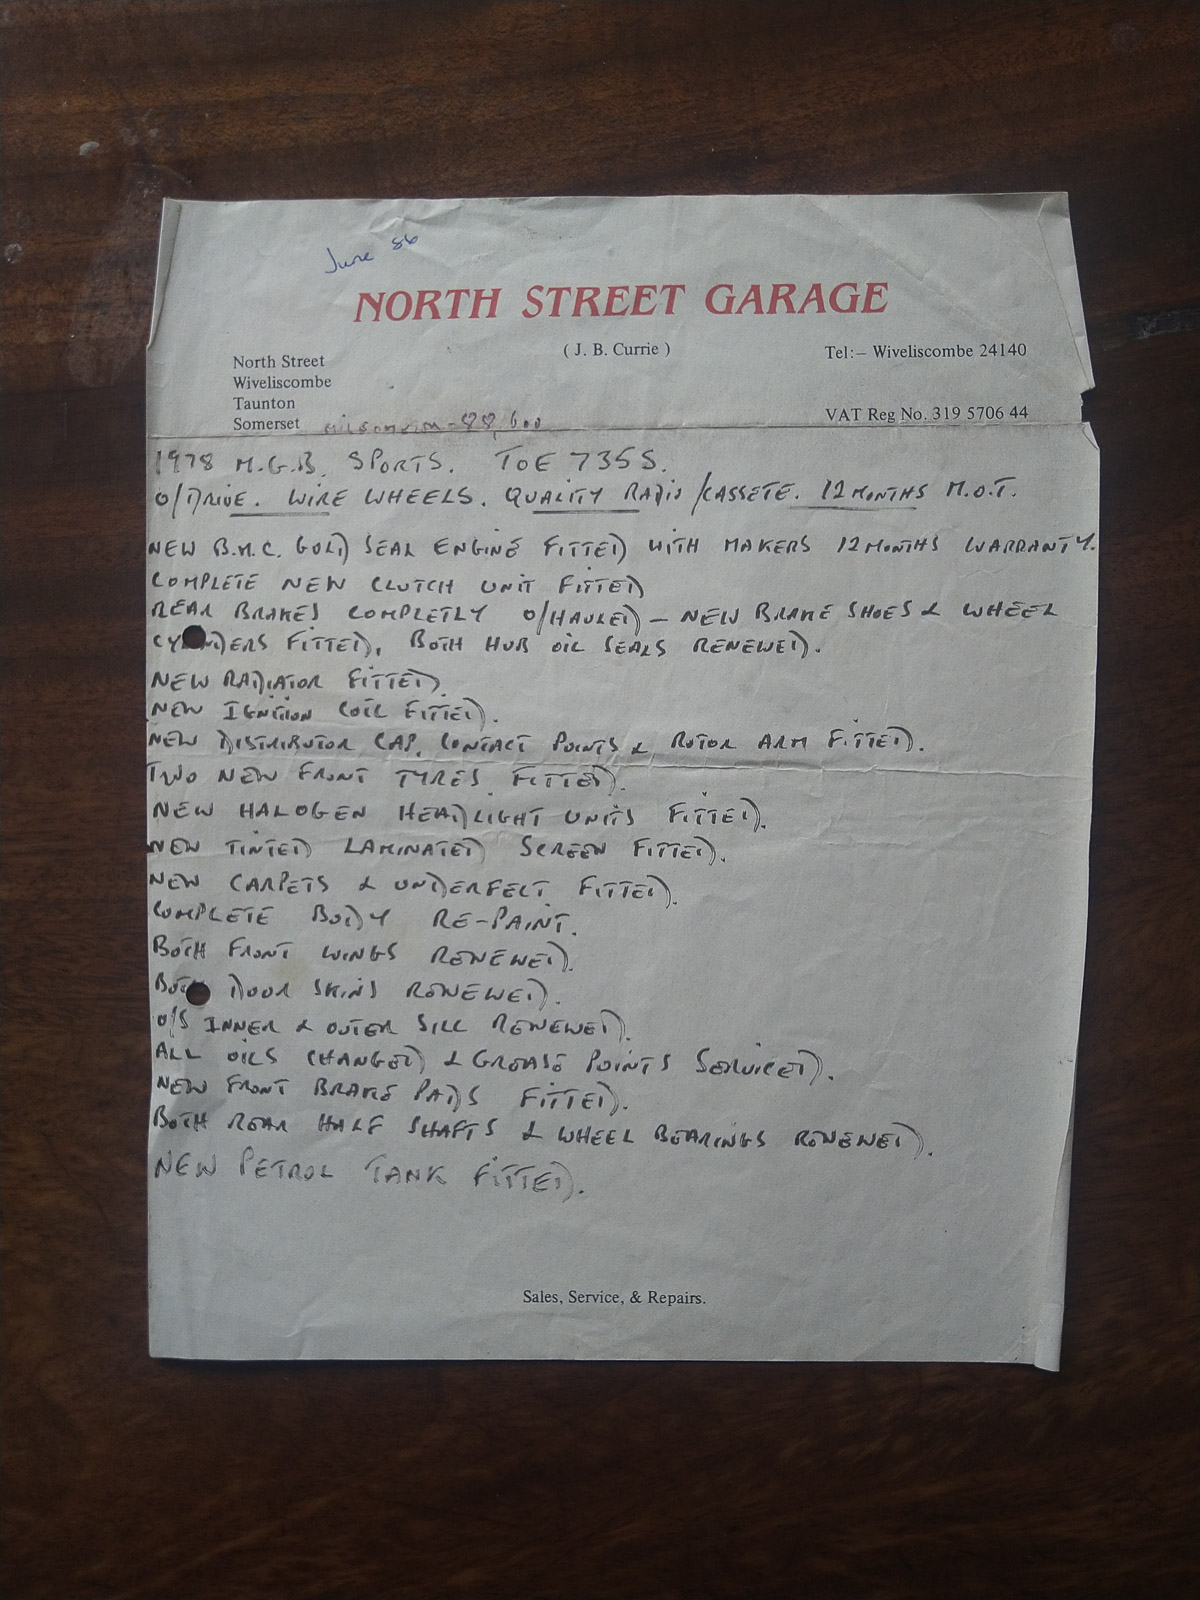 June 86
NORTH STREET GARAGE
( J. B. Currie )
Tel:– Wiveliscombe 24140
North Street
Wiveliscombe
Taunton
Somerset
VAT Reg No. 319 5706 44
88,600
1978 M.G.B. SPORTS. TOE 735S.
O/DRIVE. WIRE WHEELS. QUALITY RADIO/CASSETE. 12 MONTHS M.O.T.
NEW B.M.C. GOLD SEAL ENGINE FITTED WITH MAKERS 12 MONTHS WARRANTY.
COMPLETE NEW CLUTCH UNIT FITTED
REAR BRAKES COMPLETLY O/HAULED – NEW BRAKE SHOES & WHEEL
CYLINDERS FITTED, BOTH HUB OIL SEALS RENEWED.
NEW RADIATOR FITTED.
NEW IGNITION COIL FITTED.
NEW DISTRIBUTOR CAP, CONTACT POINTS & ROTOR ARM FITTED.
TWO NEW FRONT TYRES FITTED.
NEW HALOGEN HEADLIGHT UNITS FITTED.
NEW TINTED LAMINATED SCREEN FITTED.
NEW CARPETS & UNDERFELT FITTED.
COMPLETE BODY RE-PAINT.
BOTH FRONT WINGS RENEWED.
BOTH DOOR SKINS RENEWED.
O/S INNER & OUTER SILL RENEWED.
ALL OILS CHANGED & GREASE POINTS SERVICED.
NEW FRONT BRAKE PADS FITTED.
BOTH REAR HALF SHAFTS & WHEEL BEARINGS RENEWED.
NEW PETROL TANK FITTED.
Sales, Service, & Repairs.